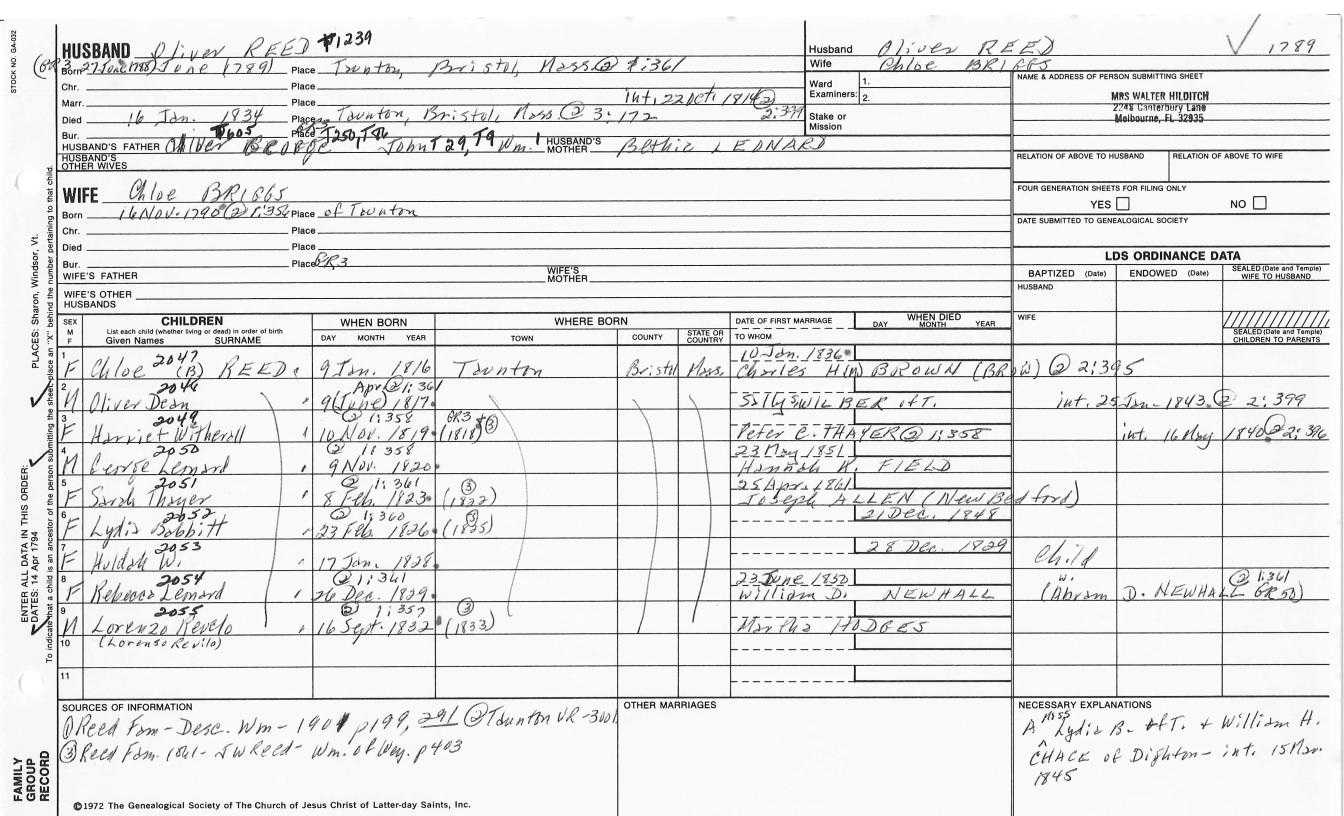 STOCK NO. GA-032
HUSBAND Oliver REED #1239
(GR3 27 June 1788)
Born June 1789 Place Taunton, Bristol, Mass @ 1:361
Chr. Place
Marr. Place int. 22 Oct. 1814 ② 2:399
Died 16 Jan. 1834 Place Taunton, Bristol, Mass @ 3:172
Bur. Place
T605 T250, T86
HUSBAND'S FATHER Oliver George John T29, T9 Wm.1 HUSBAND'S MOTHER Bethie LEONARD
HUSBAND'S OTHER WIVES
WIFE Chloe BRIGGS
Born 16 Nov. 1790 ② 1:356 Place of Taunton
Chr. Place
Died Place
Bur. Place GR3
WIFE'S FATHER WIFE'S MOTHER
WIFE'S OTHER HUSBANDS
Husband Oliver REED 1789
Wife Chloe BRIGGS
Ward Examiners: 1.
2.
Stake or Mission
NAME & ADDRESS OF PERSON SUBMITTING SHEET
MRS WALTER HILDITCH
2248 Canterbury Lane
Melbourne, FL 32935
RELATION OF ABOVE TO HUSBAND RELATION OF ABOVE TO WIFE
FOUR GENERATION SHEETS FOR FILING ONLY
YES NO
DATE SUBMITTED TO GENEALOGICAL SOCIETY
LDS ORDINANCE DATA
BAPTIZED (Date) ENDOWED (Date) SEALED (Date and Temple) WIFE TO HUSBAND
HUSBAND
WIFE
SEALED (Date and Temple) CHILDREN TO PARENTS
SEX M F CHILDREN WHEN BORN WHERE BORN DATE OF FIRST MARRIAGE WHEN DIED
List each child (whether living or dead) in order of birth
Given Names SURNAME DAY MONTH YEAR TOWN COUNTY STATE OR COUNTRY TO WHOM DAY MONTH YEAR
1 2047 10 Jan. 1836
F Chloe (B) REED 9 Jan. 1816 Taunton Bristol Mass. Charles H(W) BROWN (BROW) ② 2:395
2 2048 Apr. ② 1:361
M Oliver Dean 9 (June) 1817 Sally WILBER of T. int. 25 Jan. 1843 ② 2:399
3 2049 ② 1:358 GR3 ③
F Harriet Witherall 10 Nov. 1819 (1818) Peter C. THAYER ② 1:358 int. 16 May 1840 ② 2:396
4 2050 ② 1:358 23 May 1851
M George Lenard 9 Nov. 1820 Hannah K. FIELD
5 2051 ② 1:361 ③ 25 Apr. 1861
F Sarah Thayer 8 Feb. 1823 (1822) Joseph ALLEN (New Bedford)
6 2052 ② 1:360 ③ 21 Dec. 1848
F Lydia Babbitt 23 Feb. 1826 (1825)
7 2053 28 Dec. 1829
F Huldah W. 17 Jan. 1828 Child
8 2054 ② 1:361 23 June 1850 W. ② 1:361
F Rebecca Lenard 26 Dec. 1829 William D. NEWHALL (Abram D. NEWHALL GR50)
9 2055 ② 1:357 ③
M Lorenzo Revelo 16 Sept. 1832 (1833) Martha HODGES
10 (Lorenso Revilo)
11
SOURCES OF INFORMATION
① Reed Fam - Desc. Wm - 1901 p199, 291 ② Taunton VR - 3vol
③ Reed Fam. - JW Reed - Wm. of Wey. p403
OTHER MARRIAGES
NECESSARY EXPLANATIONS
A. Miss Lydia B. of T. & William H.
CHACE of Dighton - int. 15 Mar.
1845
©1972 The Genealogical Society of The Church of Jesus Christ of Latter-day Saints, Inc.
FAMILY GROUP RECORD
ENTER ALL DATA IN THIS ORDER:
DATES: 14 Apr 1794
PLACES: Sharon, Windsor, Vt.
To indicate that a child is an ancestor of the person submitting the sheet, place an "X" behind the number pertaining to that child.